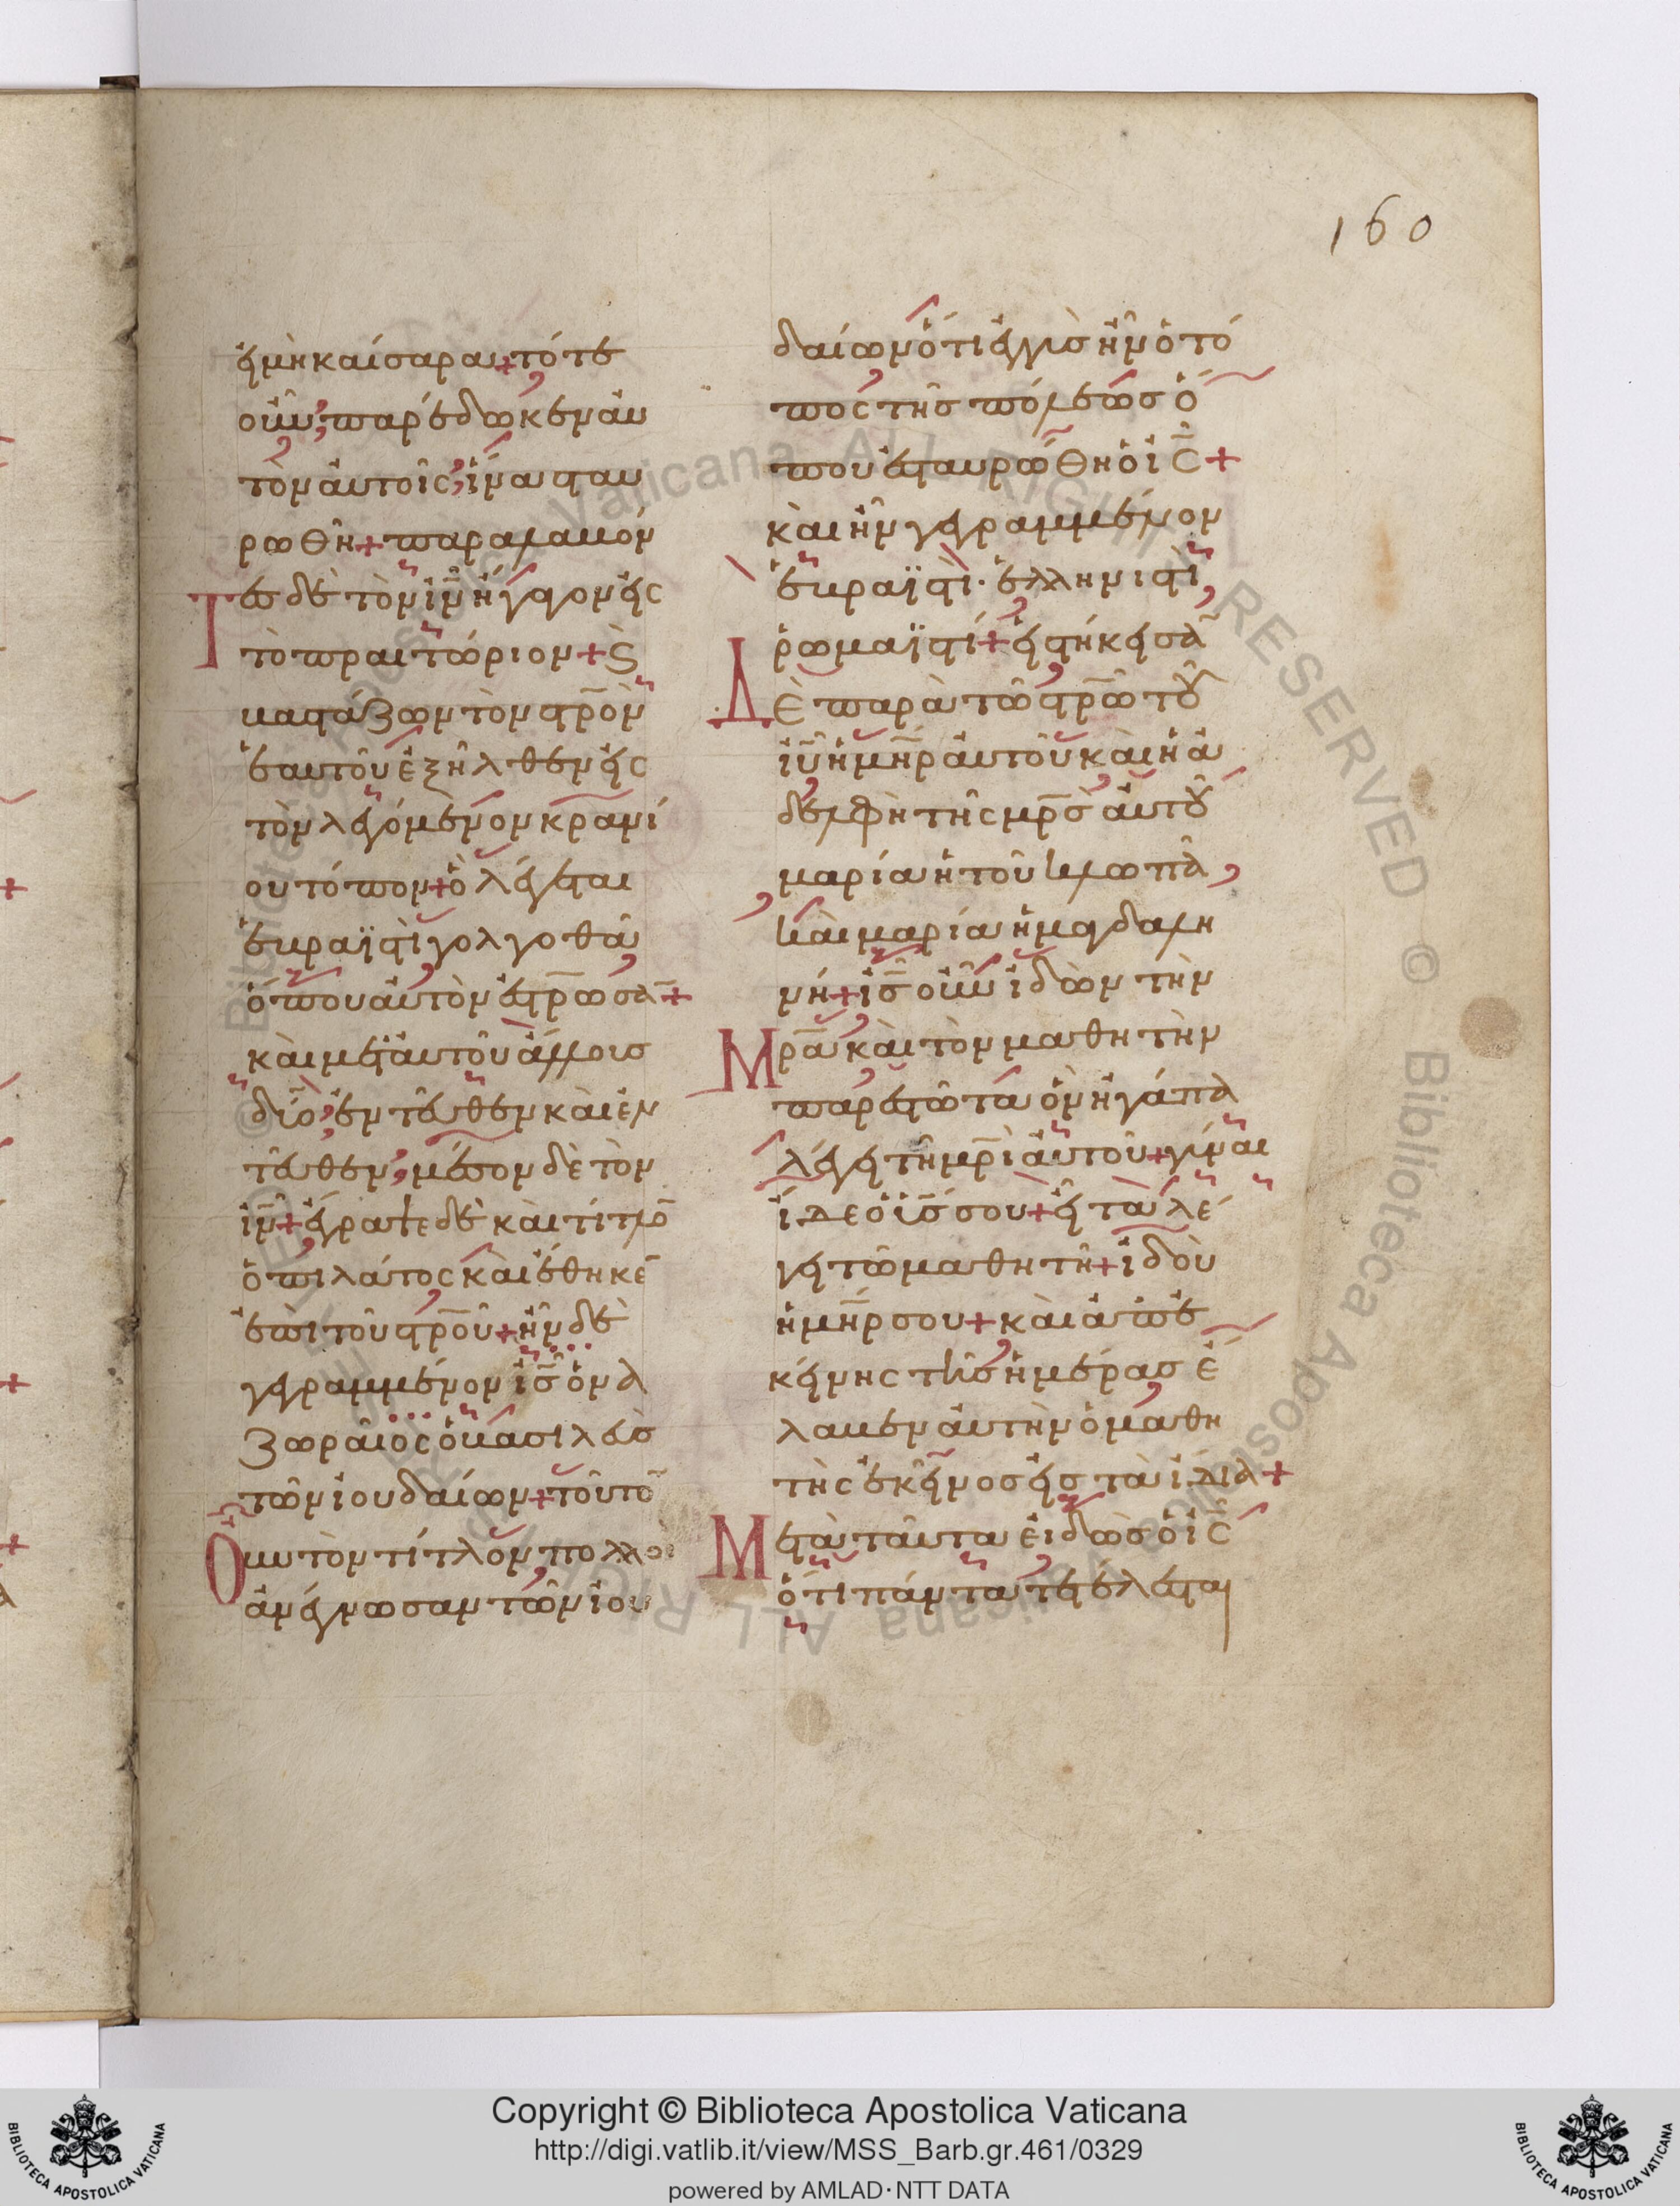 160
εἰ μὴ καίσαρα + τότε
οὖν παρέδωκεν αὐ
τὸν αὐτοῖς, ἵνα σταυ
ρωθῆ + παραλαβόν
τες δὲ τὸν ἰ̅ν̅ ἤγαγον εἰς
τὸ πραιτώριον + ϛ̀
βαστάζων τὸν σ̅τ̅ρ̅ὸν
ἑαυτοῦ ἐξῆλθεν εἰς
τὸν λεγόμενον κρανί
ου τόπον + ὃ λέγεται
ἑβραϊστὶ γολγοθᾶ
ὅπου αὐτὸν ἐστ̅ρ̅ωσα̅ +
καὶ μετ' αὐτοῦ ἄλλοις
δύο, ἐντεῦθεν καὶ ἐν
τεῦθεν, μέσον δὲ τὸν
ἰ̅ν̅ + ἔγραψε δὲ καὶ τίτλο̅
ὁ πιλάτος καὶ ἔθηκε̅
ἐπὶ τοῦ στ̅ρ̅οῦ + ἦν δὲ
γεγραμμένον ἰ̅ς̅ ὁ να
ζωραῖος ὁ βασιλεὺς
τῶν ἰουδαίων + τοῦτο̅
Οὖν τὸν τίτλον πολλοὶ
ἀνέγνωσαν τῶν ἰου
δαίων ὅτι ἐγγὺς ἦν ὁ τό
πος τῆς πόλεως ὅ
που ἐσταυρώθη ὁ ἰ̅ς̅ +
καὶ ἦν γεγραμμένον
ἑβραϊστὶ· ἑλληνιστὶ,
ῥωμαϊστί + εἱστήκεισα̅
Δὲ παρὰ τῶ στ̅ρ̅ῶ τοῦ
ἰ̅υ̅ ἡ μ̅η̅ρ̅ αὐτοῦ καὶ ἡ ἀ
δελφὴ τῆς μ̅ρ̅ς̅ αὐτοῦ
μαρία ἡ τοῦ κλωπᾶ,
καὶ μαρία ἡ μαγδαλη
νή + ἰ̅ς̅ οὖν ἰδὼν τὴν
Μ̅ρ̅α̅ καὶ τὸν μαθητὴν
παρεστῶτα ὃν ἠγάπα
λέγει τῆ μ̅ρ̅ὶ αὐτοῦ + γύναι
ἴδε ὁ ὑ̅ς̅ σου + εἶτα λέ
γει τῶ μαθητῆ + ἰδοὺ
ἡ μ̅η̅ρ̅ σου + καὶ ἀπ' ἐ
κείνης τῆς ἡμέρας ἔ
λαβεν αὐτὴν ὁ μαθη
τὴς ἐκεῖνος εἰς τὰ ἴδια +
Μετὰ ταῦτα εἰδὼς ὁ ἰ̅ς̅
ὅτι πάντα τετέλεσται
Copyright © Biblioteca Apostolica Vaticana
http://digi.vatlib.it/view/MSS_Barb.gr.461/0329
powered by AMLAD·NTT DATA
BIBLIOTECA APOSTOLICA VATICANA
BIBLIOTECA APOSTOLICA VATICANA
© Biblioteca Apostolica Vaticana ALL RIGHTS RESERVED
© Biblioteca Apostolica Vaticana ALL RIGHTS RESERVED